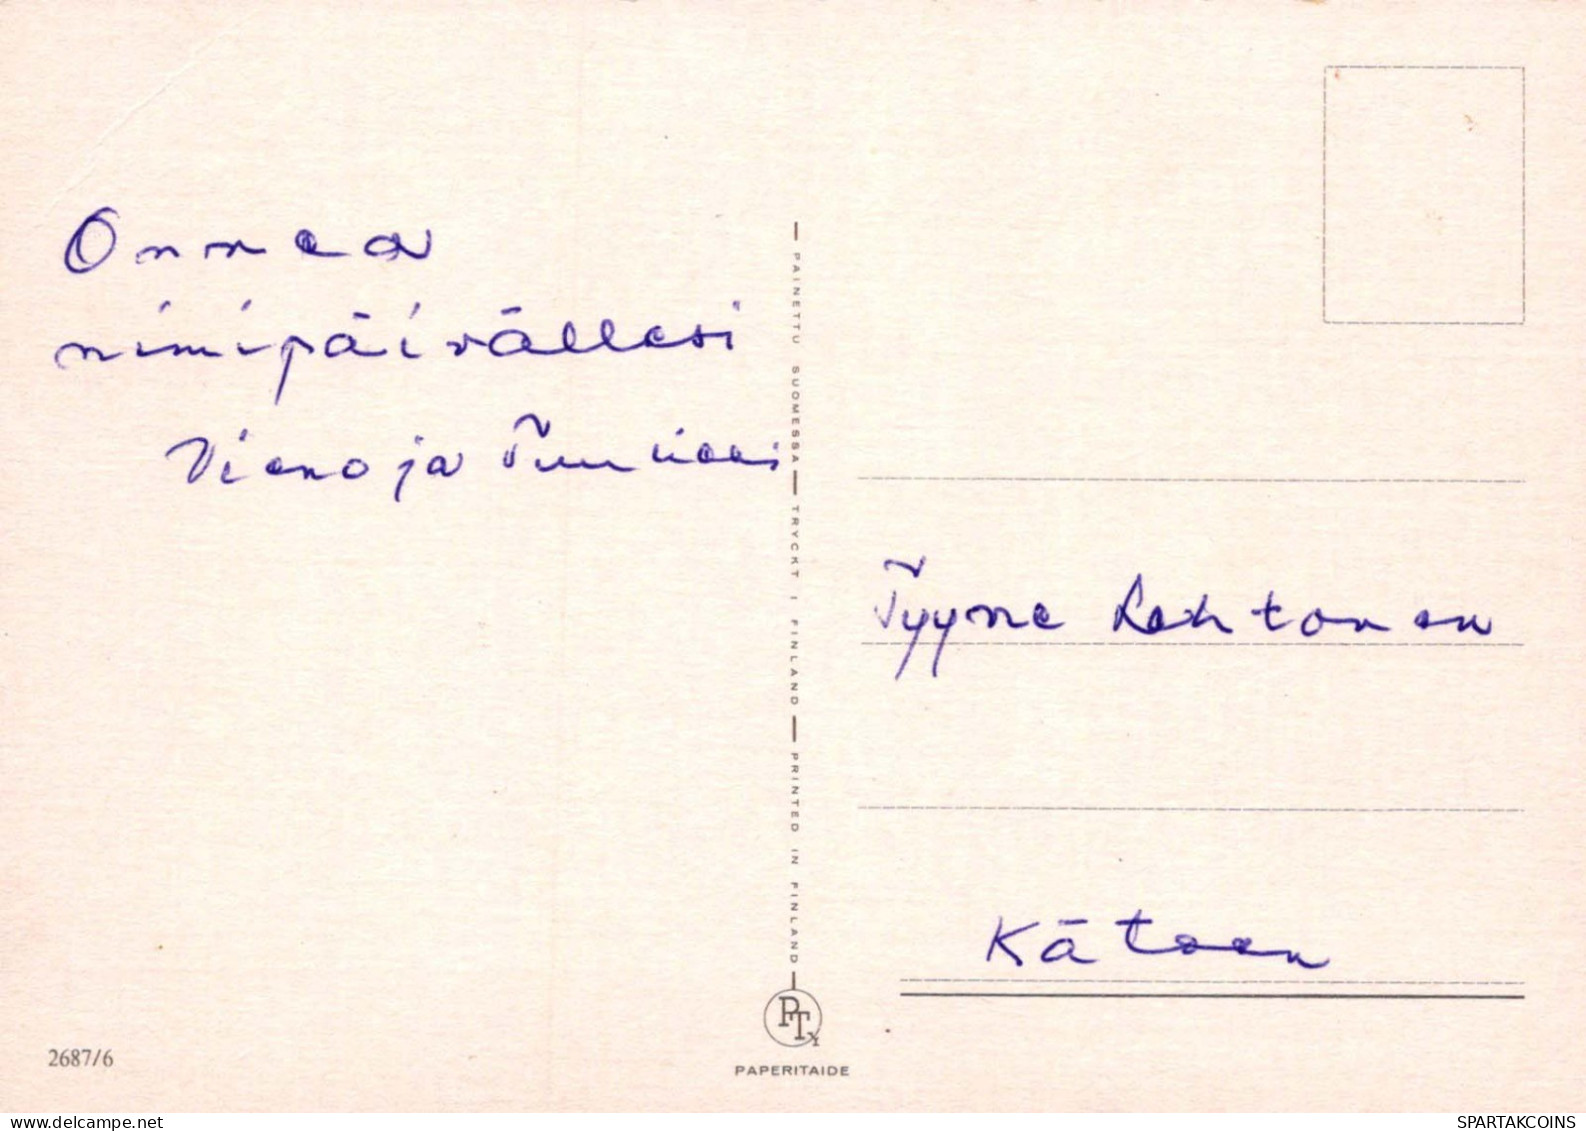 Onnea
nimipäivällesi
Vieno ja
PAINETTU SUOMESSA — TRYCKT I FINLAND — PRINTED IN FINLAND
Tyyne Lehtonen
Käteen
PTY
PAPERITAIDE
2687/6
SPARTAKCOINS
www.delcampe.net